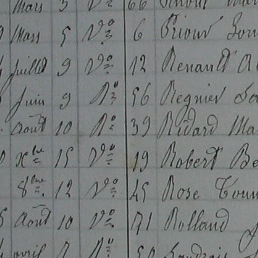 Mars 5 Vº 66
Mars 5 Vº 6 Prioux
Juillet 9 Vº 12 Renault
Juin 9 Rº 56 Regnier
Août 10 Rº 39 Ridard Ma
Xbre 15 Vº 19 Robert Be
8bre 12 Vº 45 Rose
Août 10 Vº 71 Rolland
avril 7 Rº